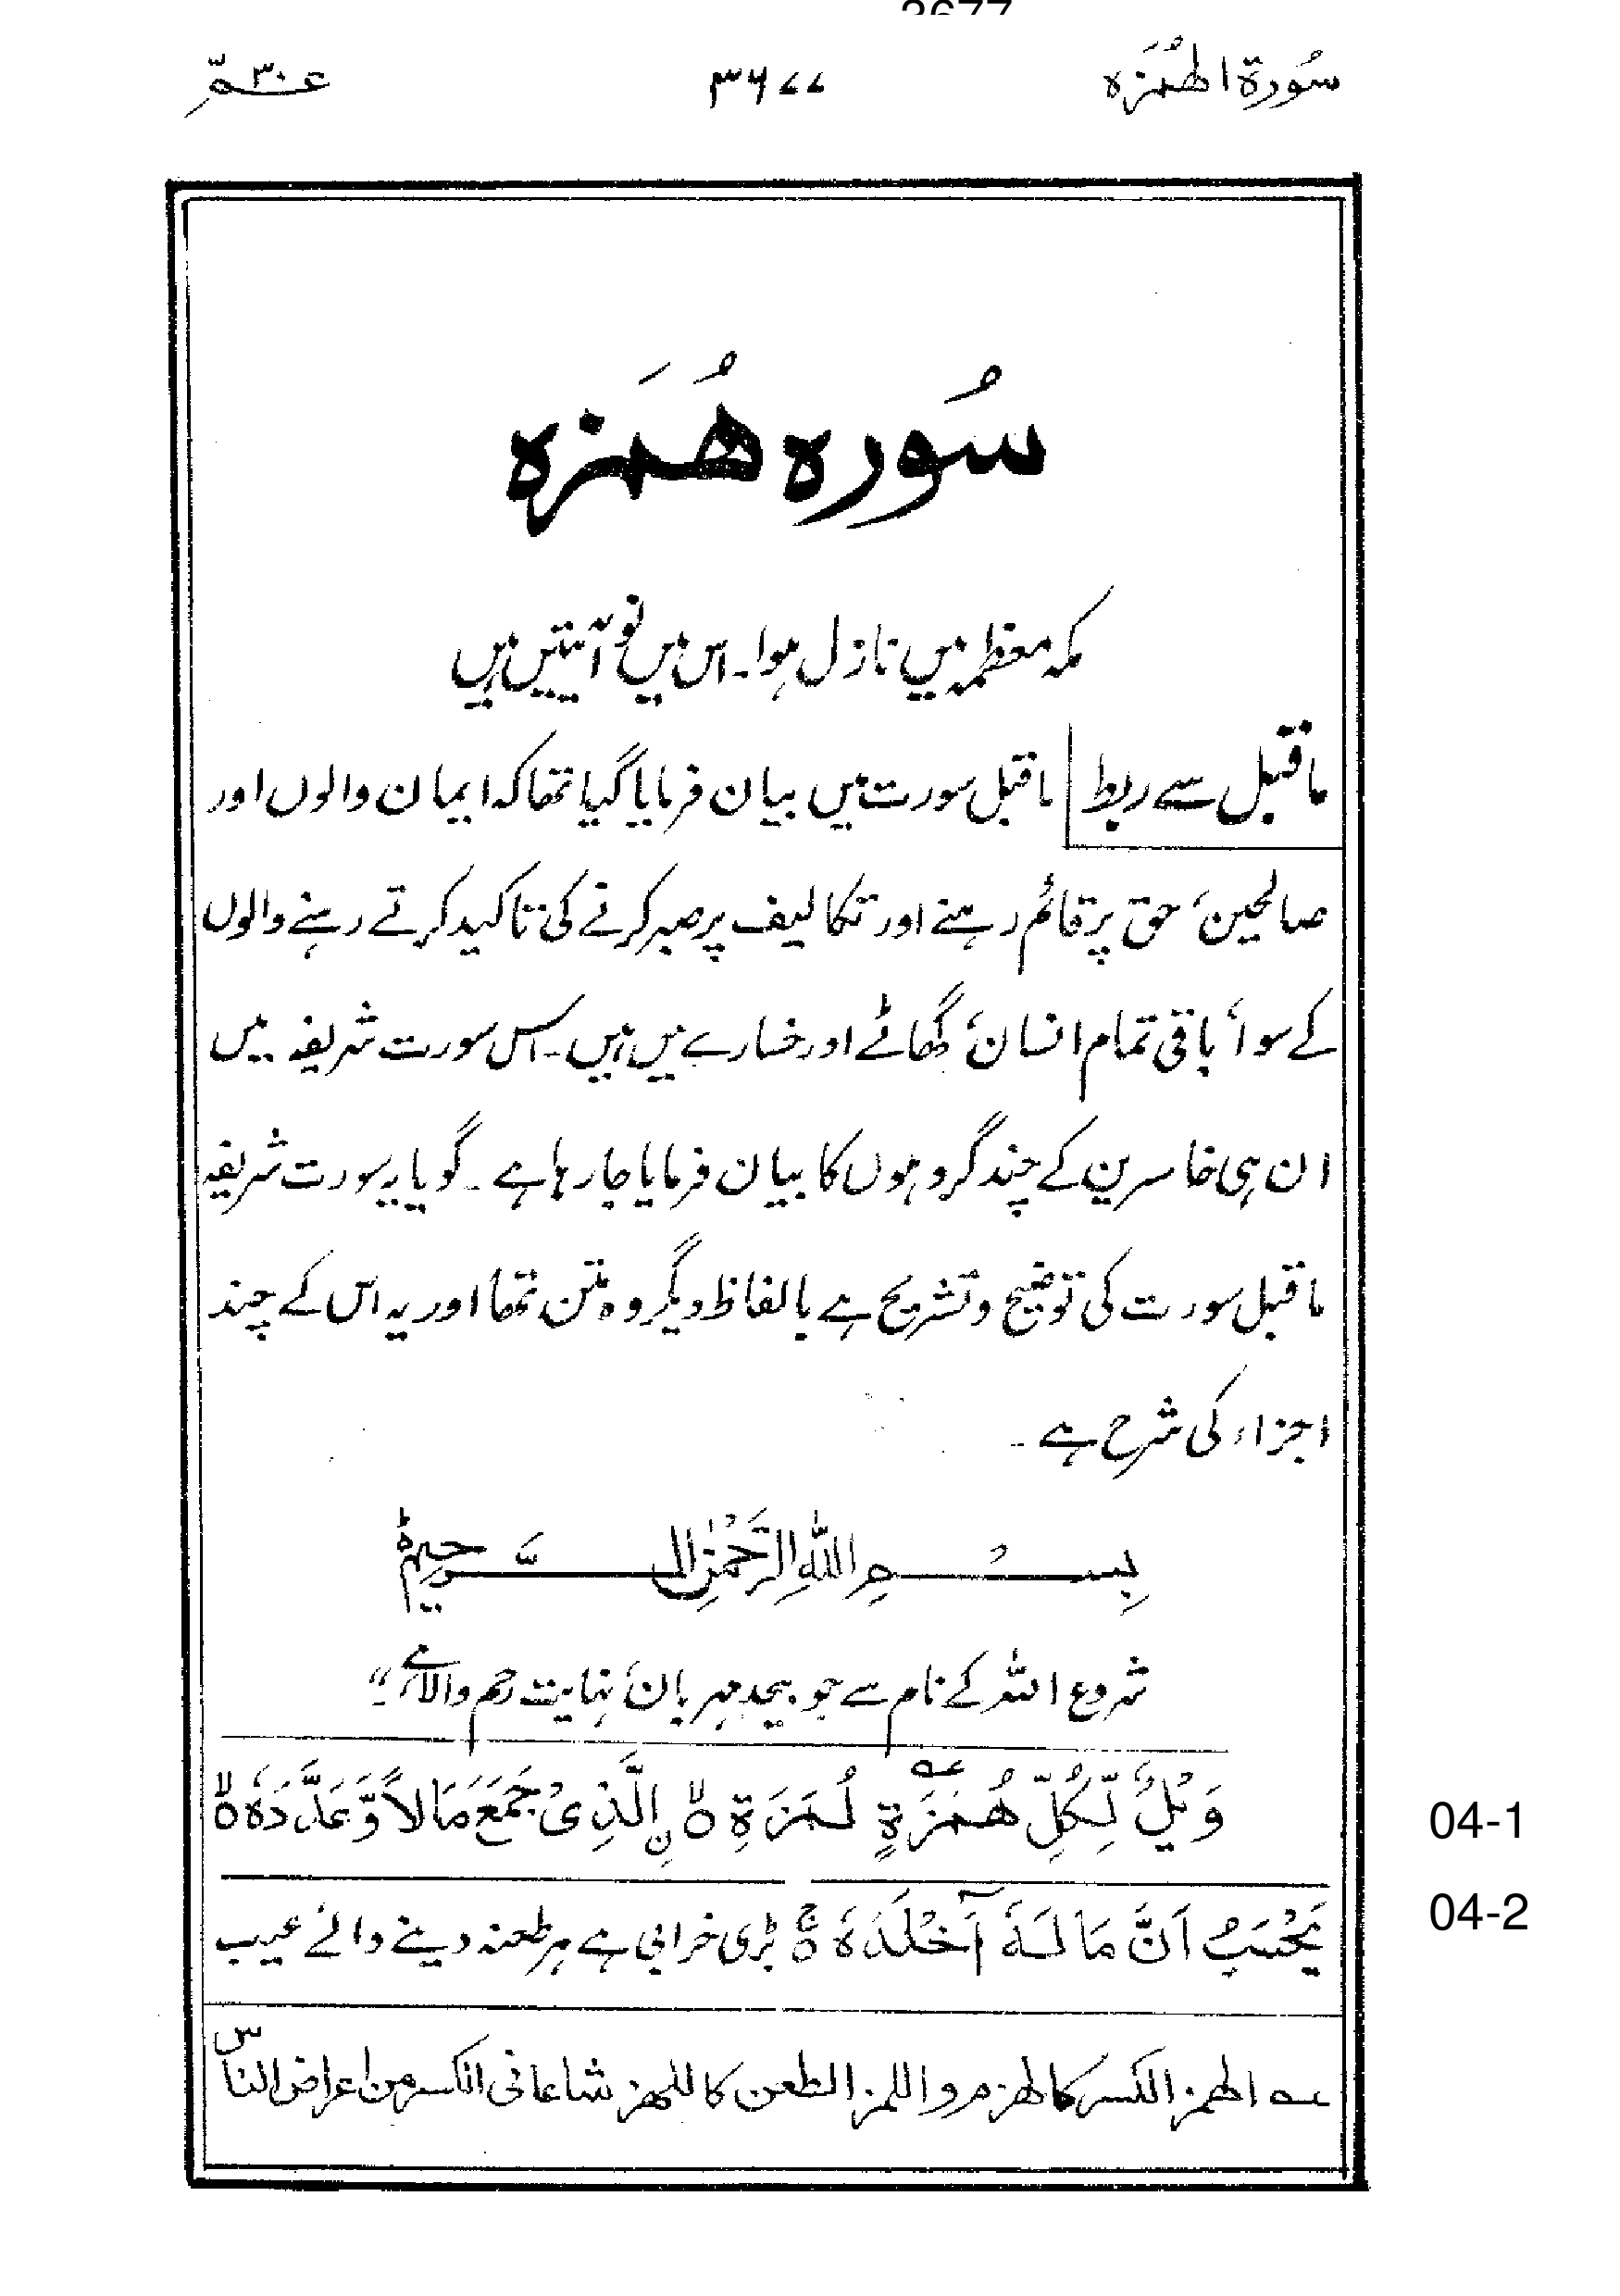 سُورۃ الھُمَزہ ۳۶۷۷ عـــمّ ۳۰
سُورہ ھُمَزہ
مکہ معظمہ میں نازل ہوا۔ اس میں نو آیتیں ہیں
ماقبل سے ربط ماقبل سورت میں بیان فرمایا گیا تھا کہ ایمان والوں اور
صالحین، حق پر قائم رہنے اور تکالیف پر صبر کرنے کی تاکید کرتے رہنے والوں
کے سوا، باقی تمام انسان، گھاٹے اور خسارے میں ہیں۔ اس سورت شریفہ میں
ان ہی خاسرین کے چند گروہوں کا بیان فرمایا جارہا ہے۔ گویا یہ سورت شریفہ
ماقبل سورت کی توضیح و تشریح ہے بالفاظ دیگر وہ متن تھا اور یہ اس کے چند
اجزاء کی شرح ہے۔
بِسْمِ اللّٰهِ الرَّحْمٰنِ الرَّحِيْمِ
شروع اللہ کے نام سے جو بیحد مہربان، نہایت رحم والا ہے"
وَيْلٌ لِّكُلِّ هُمَزَةٍ لُّمَزَةِ ۙ۝ اِۨلَّذِىْ جَمَعَ مَالًا وَّعَدَّدَهٗ ۙ۝
04-1
يَحْسَبُ اَنَّ مَالَهٗٓ اَخْلَدَهٗ ۚ۝ بڑی خرابی ہے ہر طعنہ دینے والے عیب
04-2
ـہ الھمز الکسر کالھزم واللمز الطعن کاللھز شاعا فی الکسر من اعراض الناس